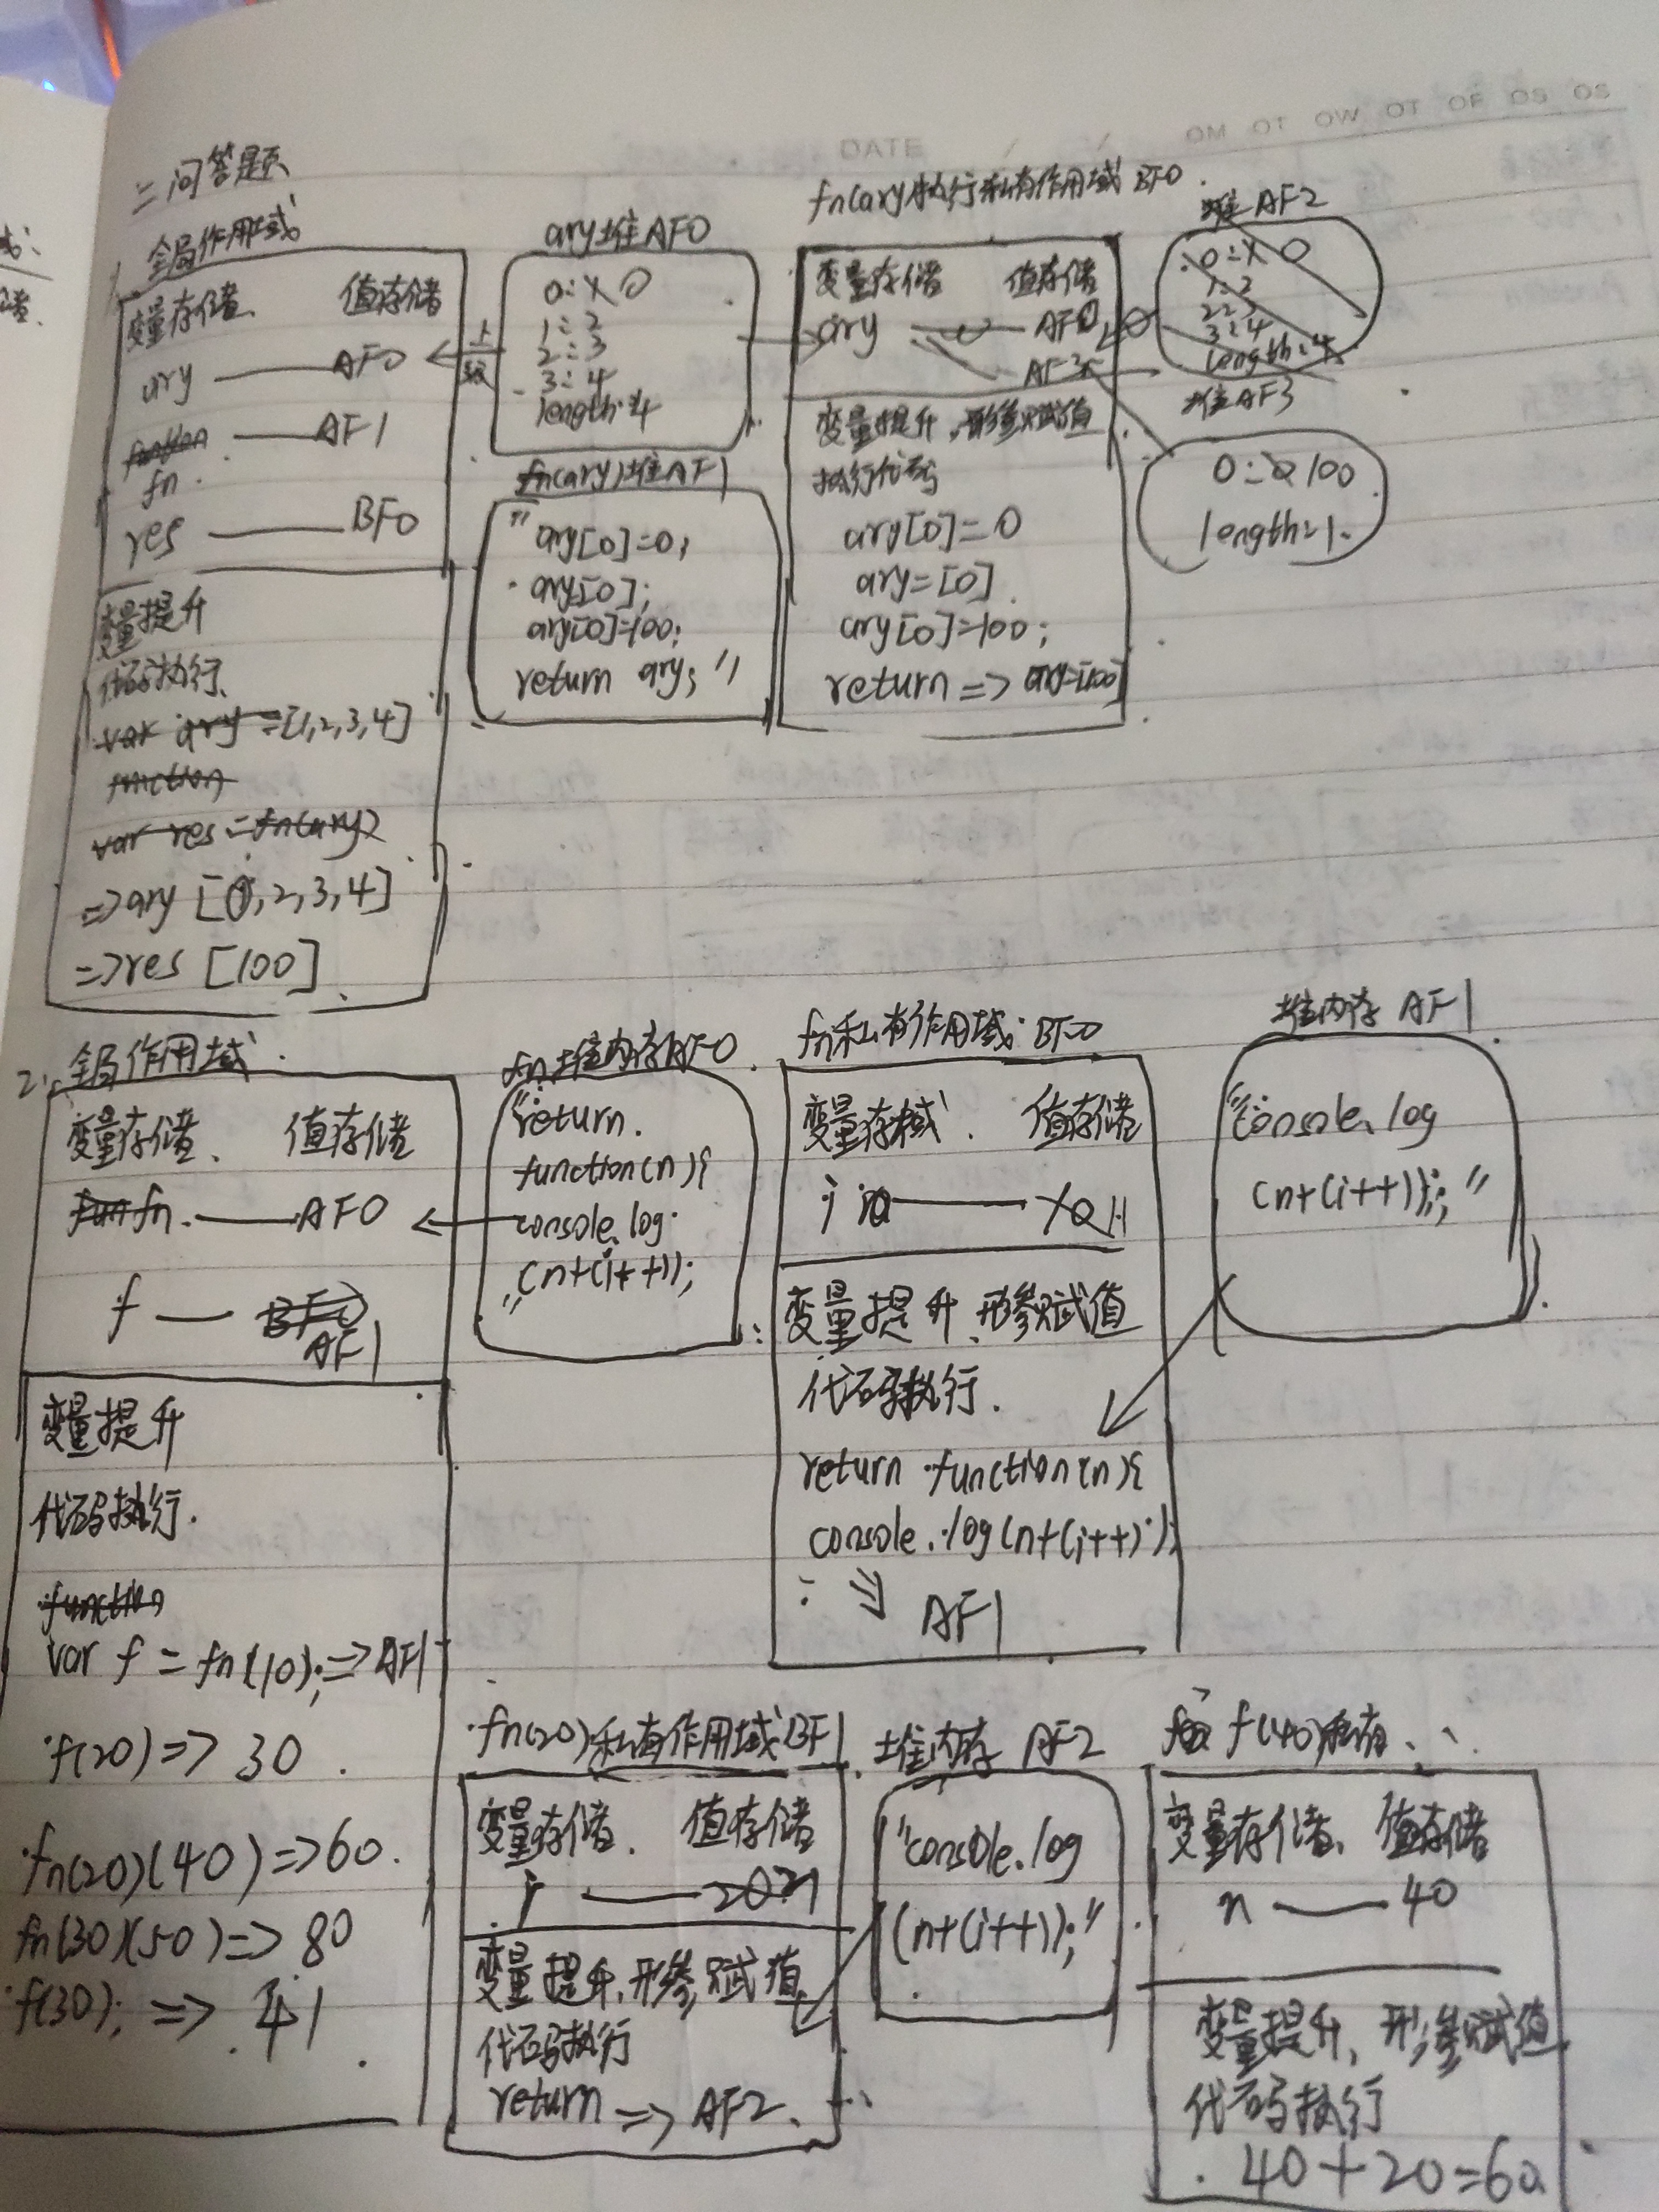 DATE / /
OM OT OW OT OF OS OS
二 问答题
1、全局作用域
变量存储、 值存储
ary —— AF0
fn —— AF1
res —— BF0
变量提升
代码执行、
var ary = [1,2,3,4]
function
var res = fn(ary)
=>ary [0,2,3,4]
=>res [100]
ary堆AF0
0: 1 0
1: 2
2: 3
3: 4
length:4
上级
fn(ary)堆AF1
"ary[0]=0;
ary[0];
ary[0]=100;
return ary;"
fn(ary)执行私有作用域 BF0
变量存储 值存储
ary —— AF0
AF3
变量提升、形参赋值
执行代码
ary[0]=0
ary=[0]
ary[0]=100;
return => ary=[100]
堆AF2
0: 1 0
1: 2
2: 3
3: 4
length:4
堆AF3
0: 0 100
length:1
2、全局作用域
变量存储、 值存储
fn —— AF0
f —— BF0
AF1
变量提升
代码执行.
function
var f = fn(10); => AF1
f(20) => 30
fn(20)(40) => 60
fn(30)(50) => 80
f(30); => 41
fn堆内存AF0
"return
function(n){
console.log
(n+(i++));"
fn私有作用域 BF0
变量存域、 值存储
i —— 10 11
变量提升、形参赋值
代码执行.
return function(n){
console.log(n+(i++));
=> AF1
堆内存 AF1
"console.log
(n+(i++));"
fn(20)私有作用域BF1
变量存储、 值存储
i —— 20 21
变量提升、形参赋值
代码执行
return => AF2
堆内存 AF2
"console.log
(n+(i++));"
f(40)私有
变量存储、 值存储
n —— 40
变量提升、形参赋值
代码执行
40+20=60